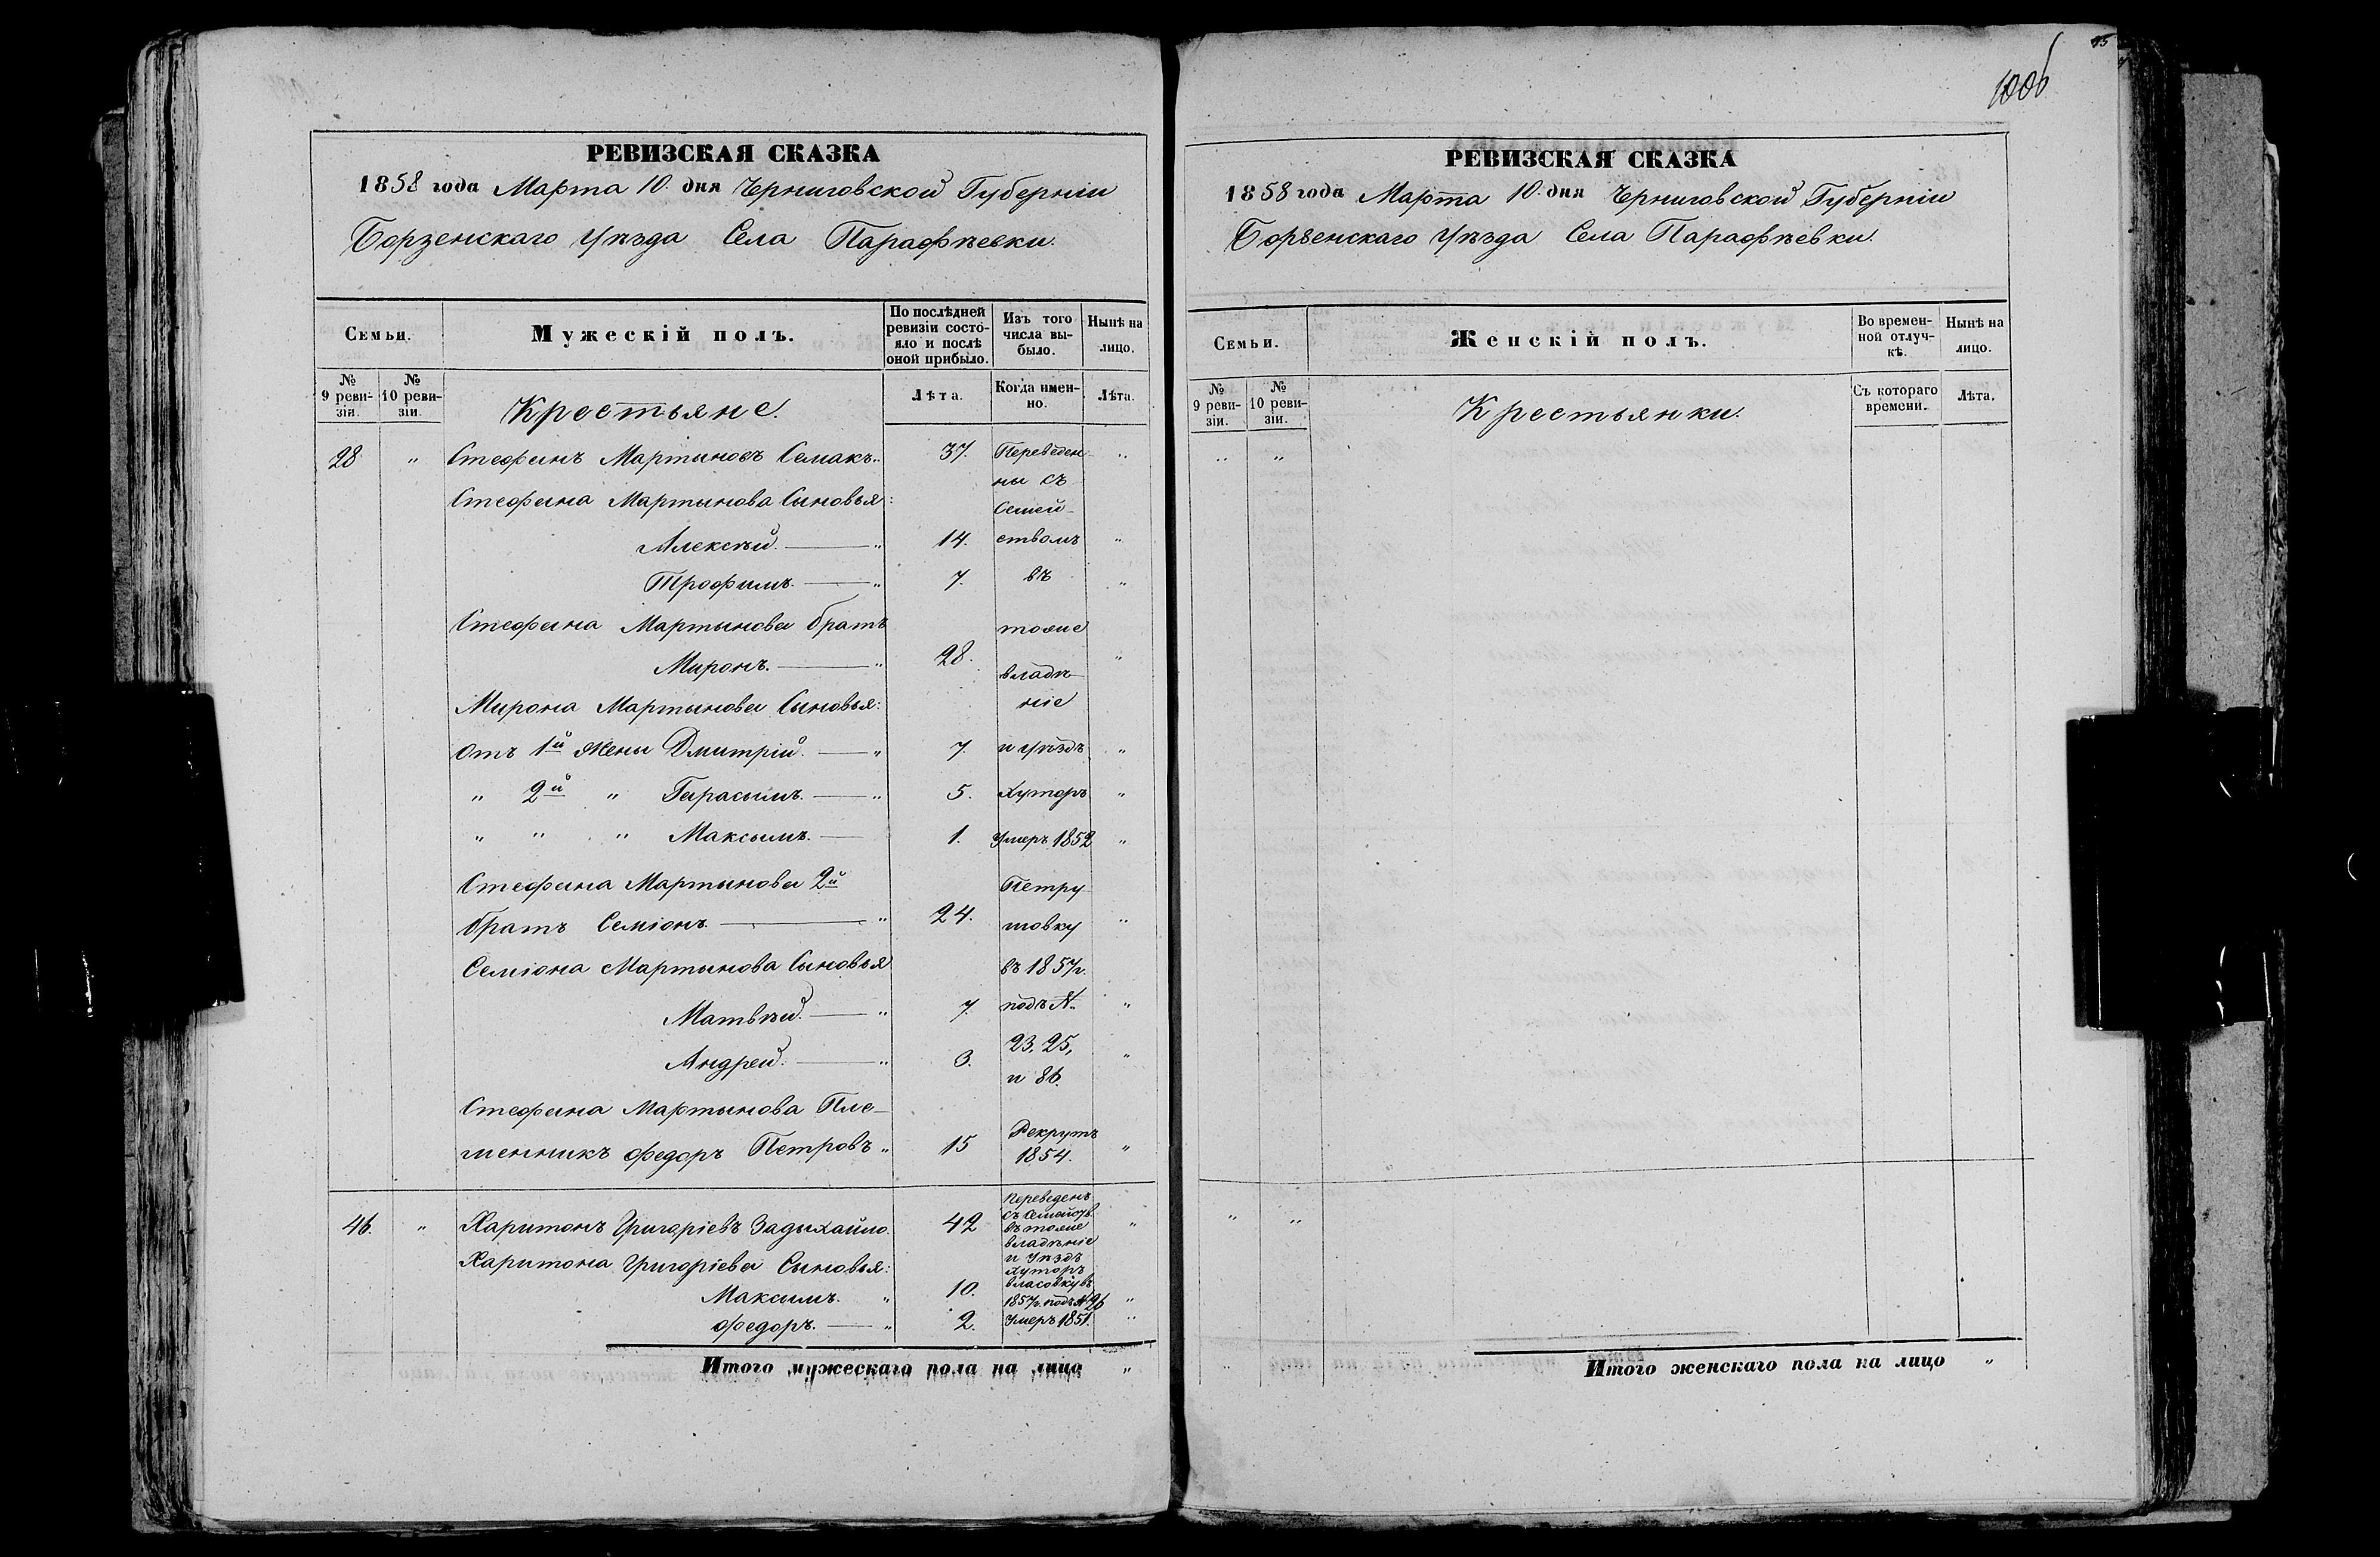 РЕВИЗСКАЯ СКАЗКА
1858 года Марта 10. дня Черниговской Губерніи
Борзенскаго Уѣзда Села Парафѣевки.
Семьи.
Мужескій полъ.
По послѣдней ревизіи состояло и послѣ оной прибыло.
Изъ того числа выбыло.
Нынѣ на лицо.
№ 9 ревизіи.
№ 10 ревизіи.
Крестьяне.
Лѣта.
Когда именно.
Лѣта.
28 " Стефанъ Мартыновъ Семакъ. 37. Переведен- "
ны съ
Стефана Мартынова Сыновья:
Семей-
Алексѣй. — " 14. ствомъ "
Трофимъ. — " 7. въ "
Стефана Мартынова братъ
тоже
Миронъ. — " 28. "
владѣ-
Мирона Мартынова Сыновья:
ніе
Отъ 1й Жены Дмитрій. — " 7. и уѣздъ "
" 2й " Гарасымъ. — " 5. Хуторъ "
" " " Максымъ. — 1. Умеръ 1852 "
Стефана Мартынова 2й
Петру-
братъ Семіонъ. — " 24. шовку "
Семіона Мартынова Сыновья
въ 1857г.
Матвѣй. — " 7. подъ № "
Андрей. — " 3. 23, 25, "
и 86.
Стефана Мартынова Пле-
менникъ Федоръ Петровъ " 15 Рекрутъ "
1854.
46. " Харитонъ Григоріевъ Задыхайло. 42 "
Переведенъ
съ Семейств.
въ тоже
владѣніе
и Уѣздъ
Хуторъ
Власовку въ
1857г. подъ № 26
Харитона Григоріева Сыновья:
Максимъ. " 10. "
Федоръ. — " 2. Умеръ 1851. "
Итого мужескаго пола на лицо "
1006
РЕВИЗСКАЯ СКАЗКА
1858 года Марта 10. дня Черниговской Губерніи
Борзенскаго Уѣзда Села Парафѣевки.
Семьи.
Женскій полъ.
Во временной отлучкѣ.
Нынѣ на лицо.
№ 9 ревизіи.
№ 10 ревизіи.
Крестьянки.
Съ котораго времени.
Лѣта.
" "
" "
Итого женскаго пола на лицо "